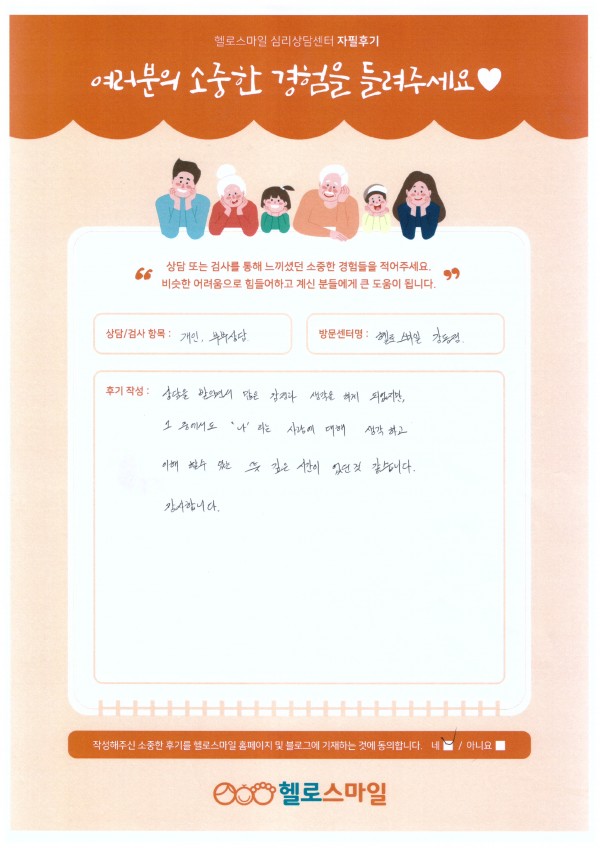 헬로스마일 심리상담센터 자필후기
여러분의 소중한 경험을 들려주세요♥
“ 상담 또는 검사를 통해 느끼셨던 소중한 경험들을 적어주세요.
비슷한 어려움으로 힘들어하고 계신 분들에게 큰 도움이 됩니다. ”
상담/검사 항목 : 개인, 부부상담
방문센터명 : 헬로스마일 강동점.
후기 작성 : 상담을 받으면서 많은 감정과 생각을 하게 되었지만,
그 중에서도 '나' 라는 사람에 대해 생각하고
이해 할수 있는 뜻 깊은 시간이 었던것 같습니다.
감사합니다.
작성해주신 소중한 후기를 헬로스마일 홈페이지 및 블로그에 기재하는 것에 동의합니다. 네 / 아니요
헬로스마일